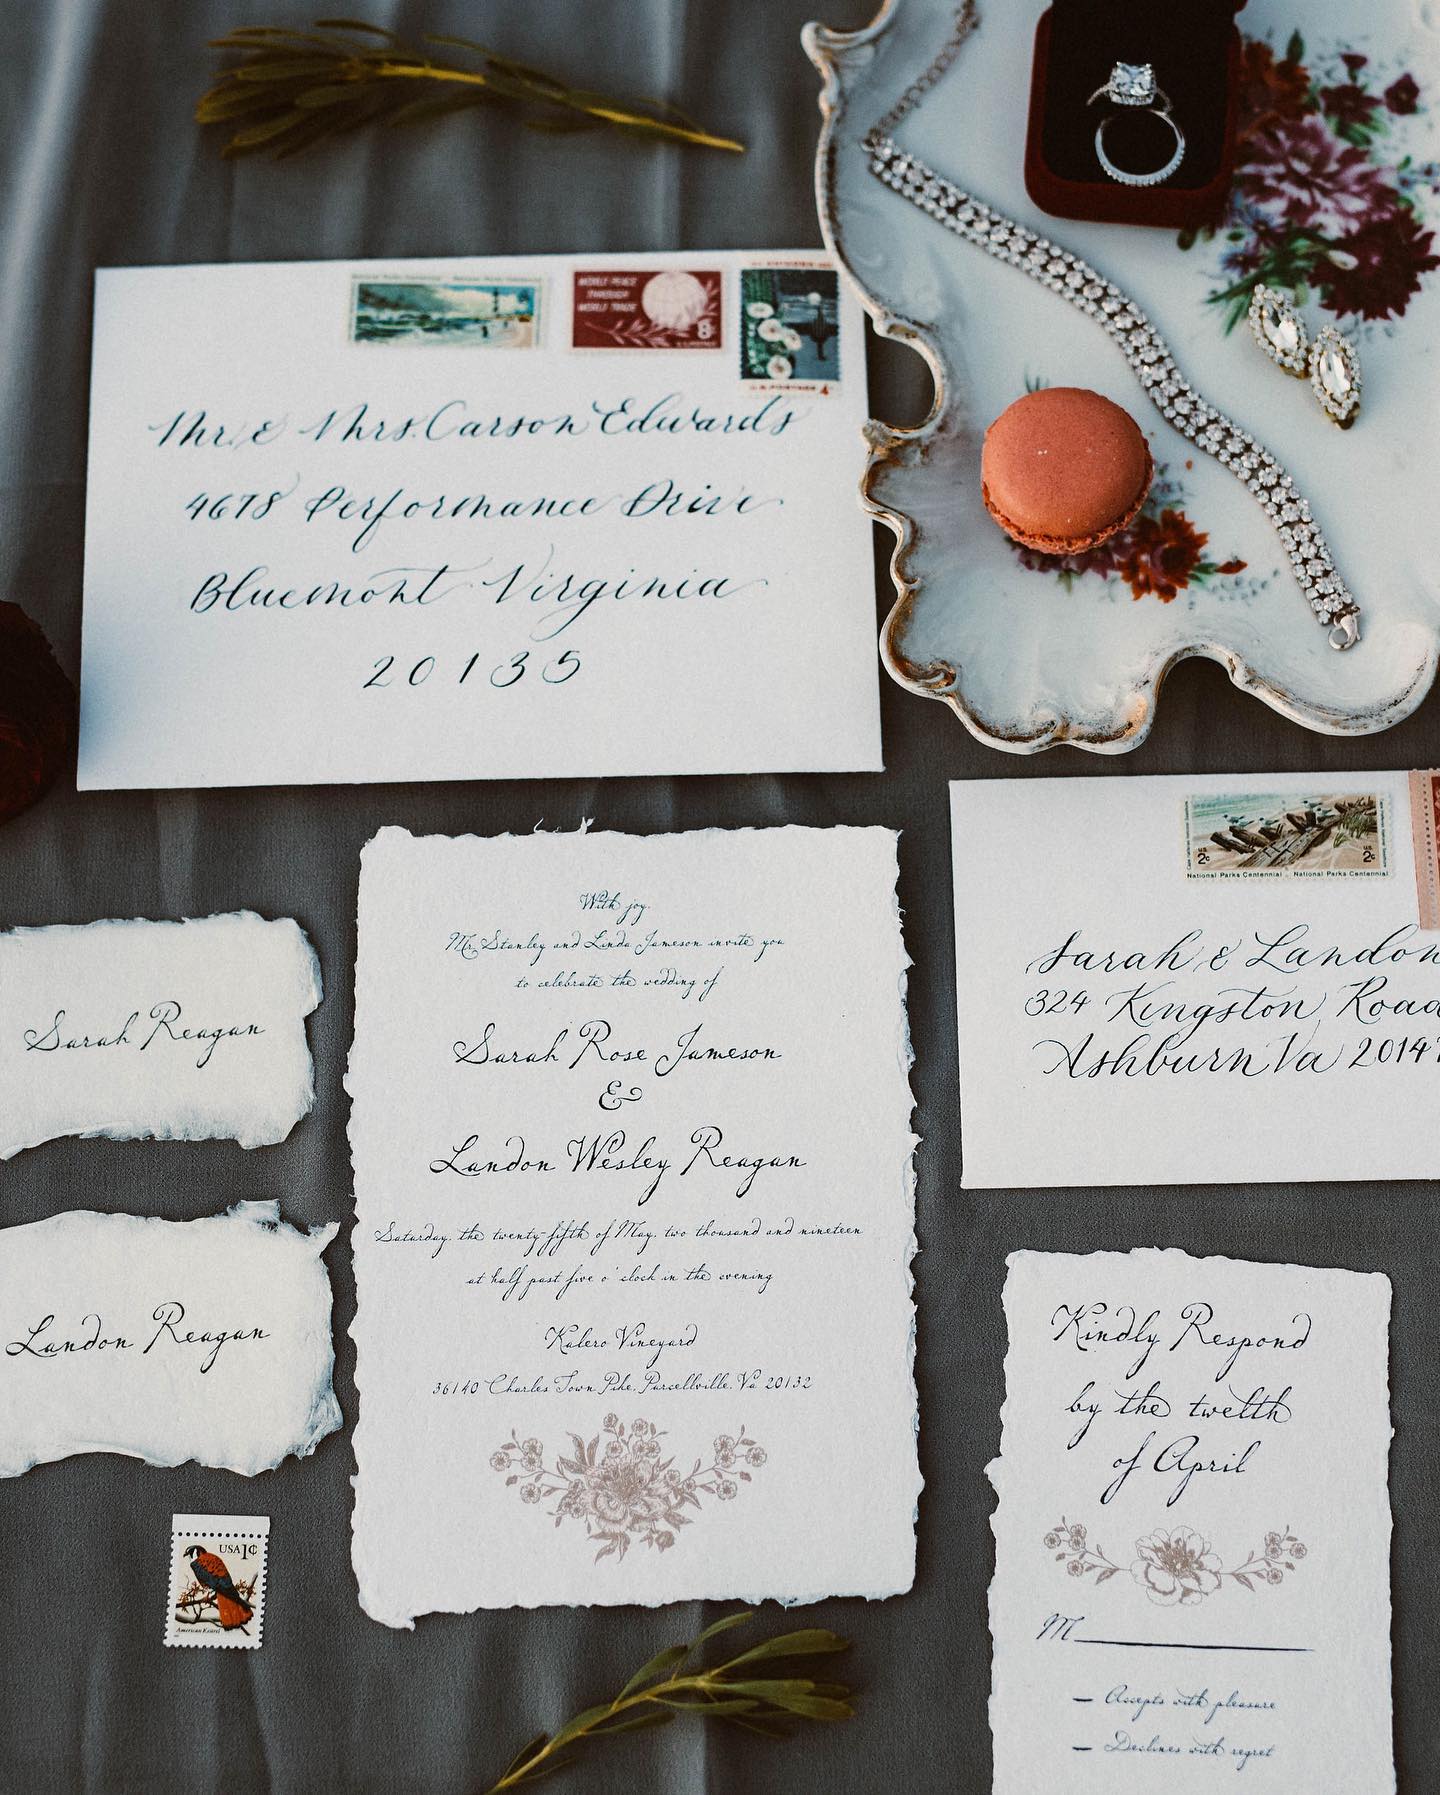 National Parks Centennial National Parks Centennial
WORLD PEACE
THROUGH
WORLD TRADE
8c
U.S. POSTAGE 4
Mr. & Mrs. Carson Edwards
4678 Performance Drive
Bluemont Virginia
20135
US 2c US 2c
National Parks Centennial National Parks Centennial
Sarah & Landon
324 Kingston Road
Ashburn Va 20147
Sarah Reagan
Landon Reagan
USA 1¢
American Kestrel
With joy,
Mr. Stanley and Linda Jameson invite you
to celebrate the wedding of
Sarah Rose Jameson
&
Landon Wesley Reagan
Saturday, the twenty-fifth of May, two thousand and nineteen
at half past five o' clock in the evening
Kalero Vineyard
36140 Charles Town Pike, Purcellville, Va 20132
Kindly Respond
by the twelth
of April
M
Accepts with pleasure
Declines with regret